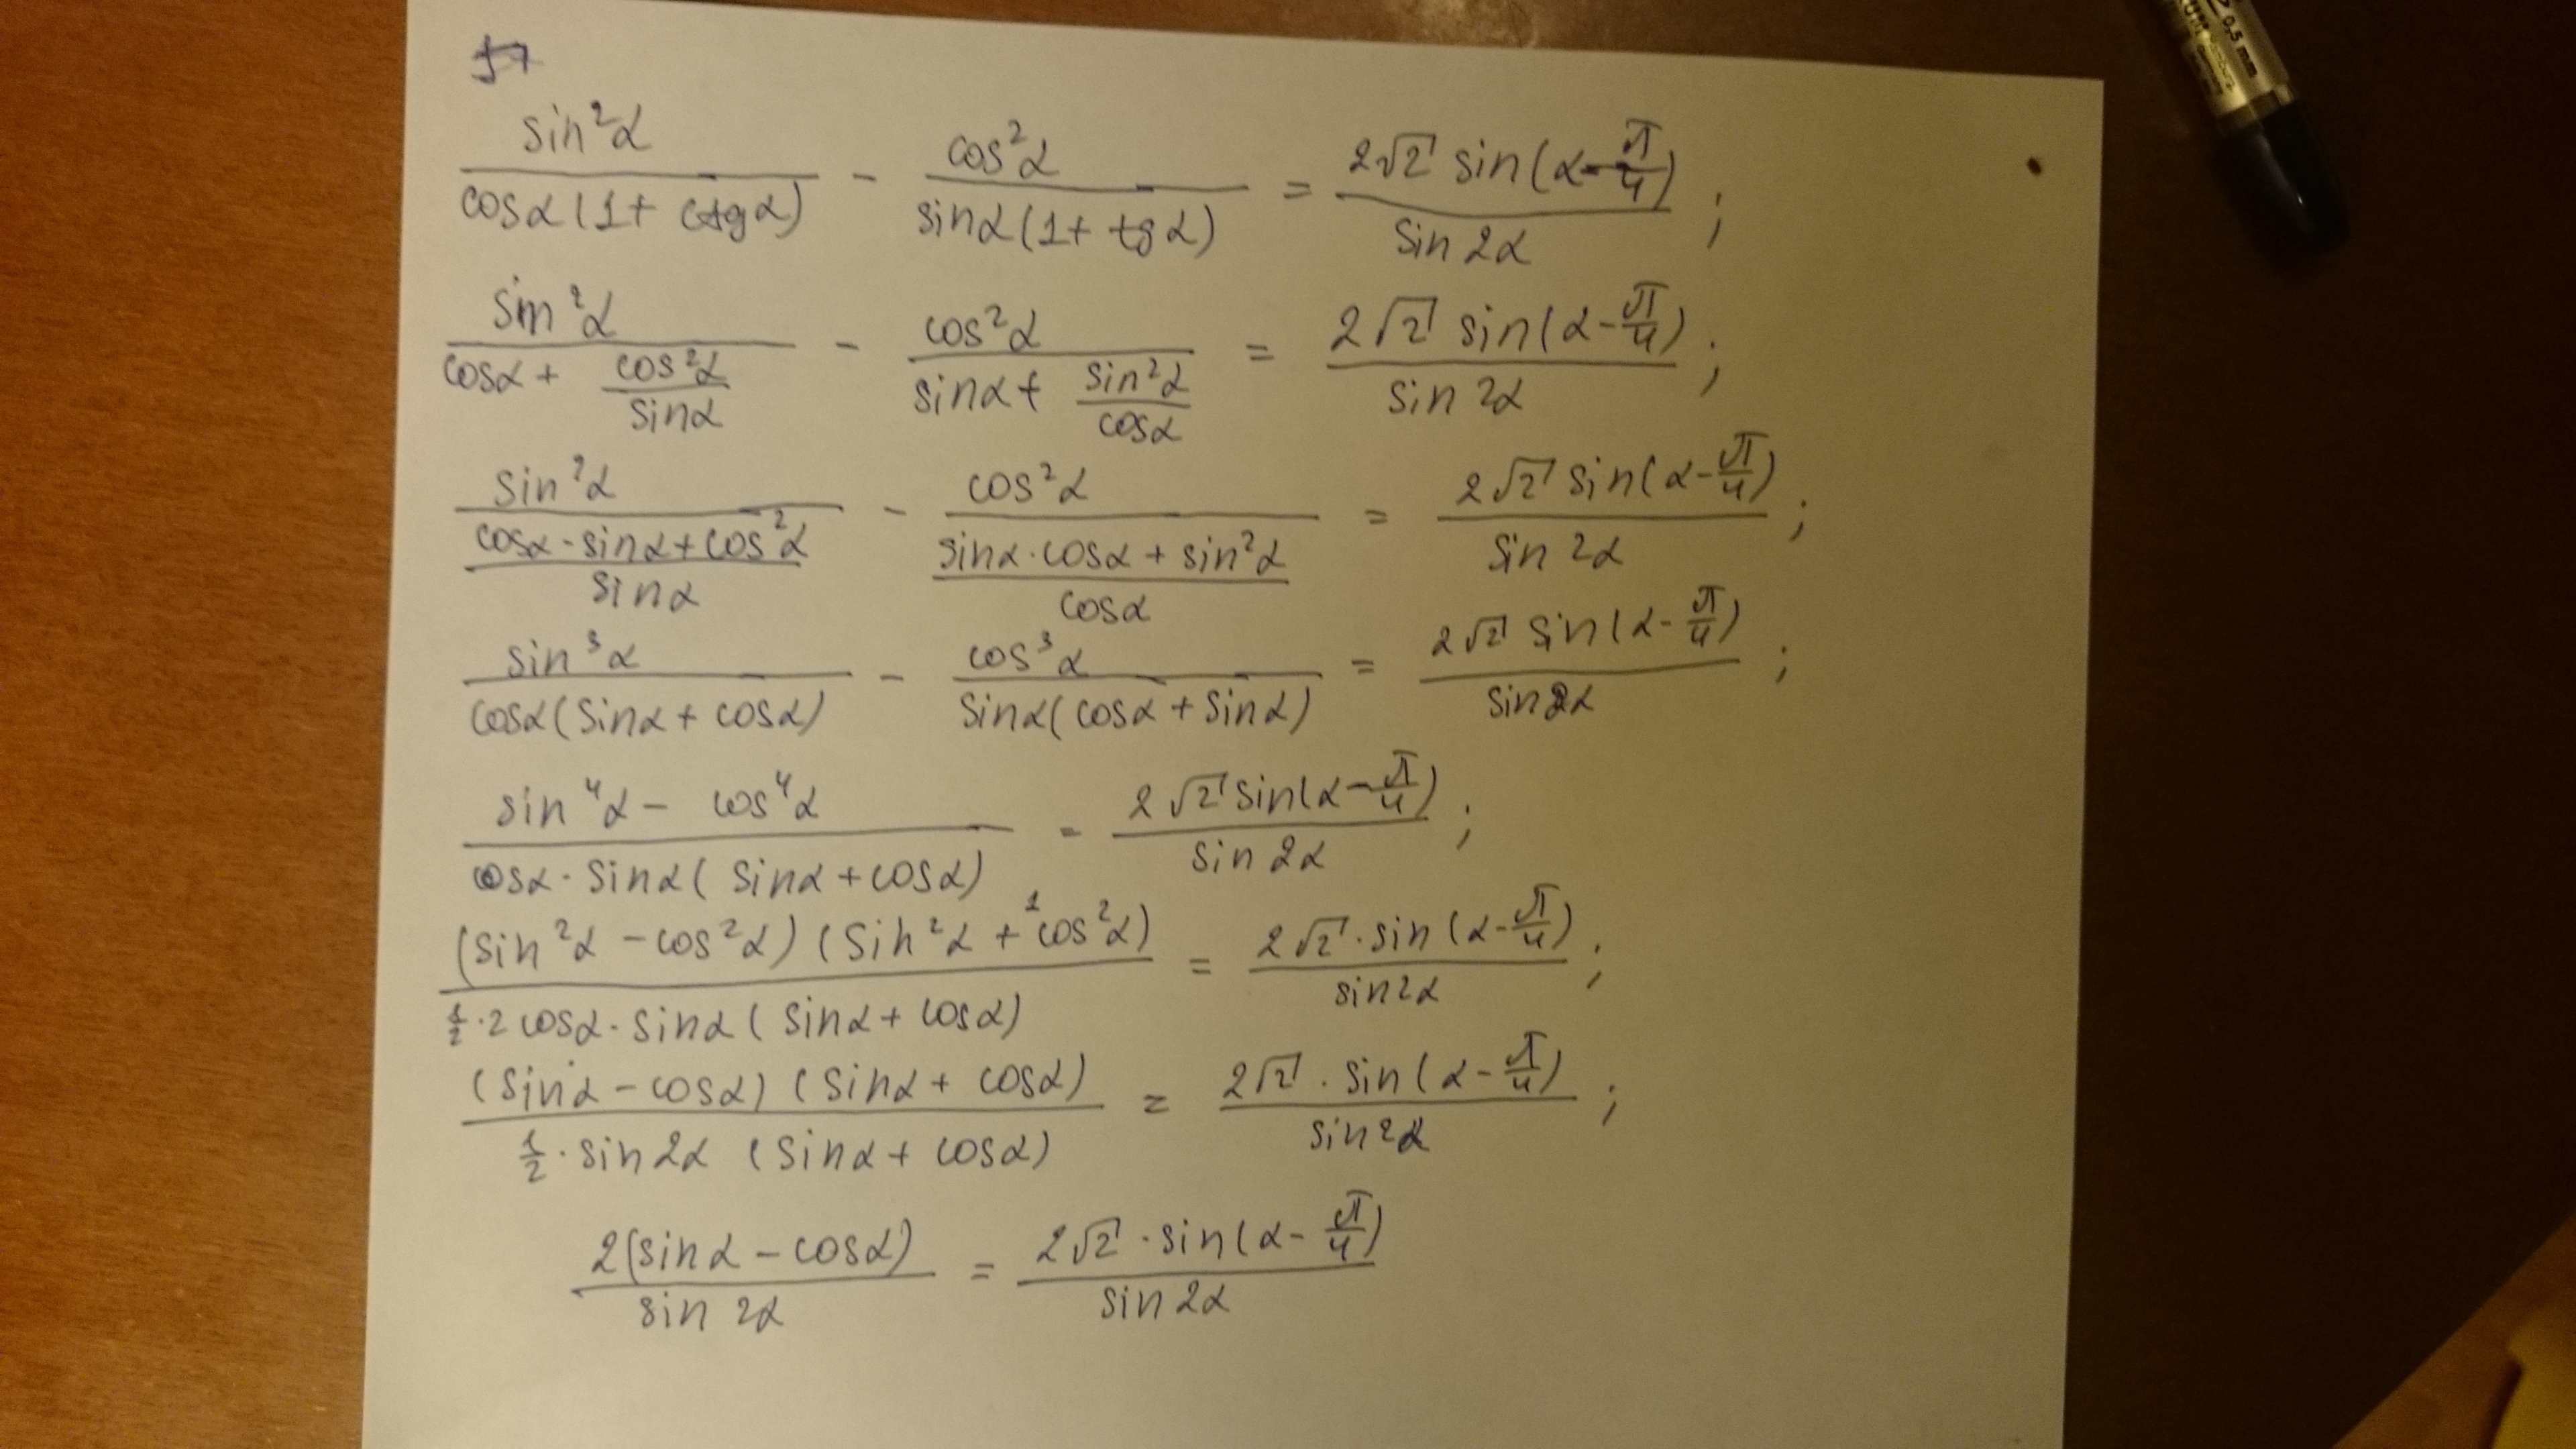 17
sin²α / cosα(1 + ctgα) - cos²α / sinα(1 + tgα) = 2√2 sin(α - π/4) / sin 2α ;
sin²α / (cosα + cos²α/sinα) - cos²α / (sinα + sin²α/cosα) = 2√2 sin(α - π/4) / sin 2α ;
sin²α / ((cosα · sinα + cos²α) / sinα) - cos²α / ((sinα · cosα + sin²α) / cosα) = 2√2 sin(α - π/4) / sin 2α ;
sin³α / cosα(sinα + cosα) - cos³α / sinα(cosα + sinα) = 2√2 sin(α - π/4) / sin2α ;
sin⁴α - cos⁴α / cosα · sinα(sinα + cosα) = 2√2 sin(α - π/4) / sin 2α ;
1
(sin²α - cos²α)(sin²α + cos²α) / ½ · 2 cosα · sinα(sinα + cosα) = 2√2 · sin(α - π/4) / sin2α ;
(sinα - cosα)(sinα + cosα) / ½ · sin2α (sinα + cosα) = 2√2 · sin(α - π/4) / sin2α ;
2(sinα - cosα) / sin 2α = 2√2 · sin(α - π/4) / sin 2α
0,5 mm